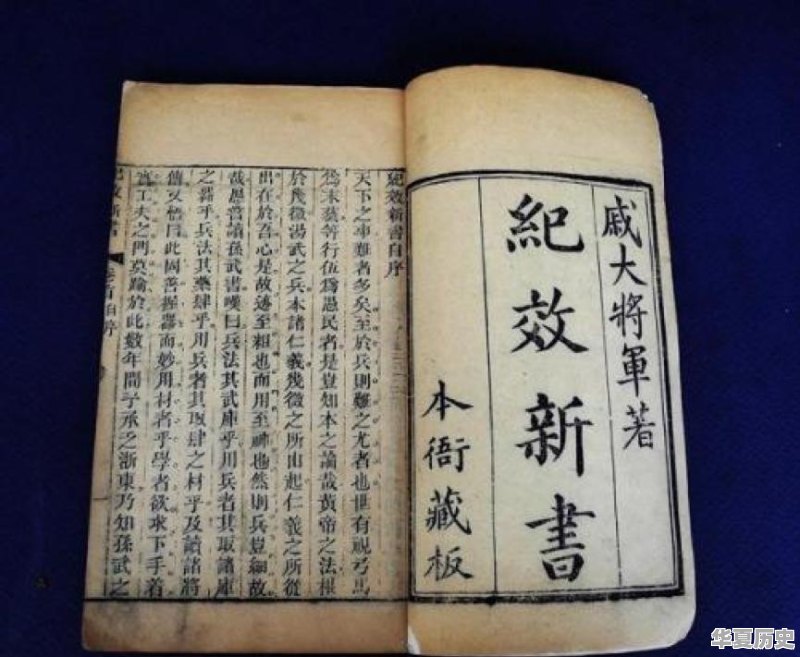 戚大將軍著
紀效新書
本衙藏板
紀效新書自序
天下之事難者多矣至於兵則難之尤者也世有視弓馬
爲末藝等行伍爲愚民者是豈知本之論哉黃帝之法根
於幾微湯武之兵本諸仁義幾微之所由起仁義之所從
出在於吾心是故迹至粗也而用至神也然則兵豈細故
哉愚嘗讀孫武書嘆曰兵法其武庫乎用兵者其取諸庫
之器乎兵法其藥肆乎用兵者其取肆之材乎及讀諸將
傳又悟曰此固善握器而妙用材者乎學者欲求下手着
實工夫之門莫踰於此數年間予承乏浙東乃知孫武之
紀效新書 卷首自序
华夏历史